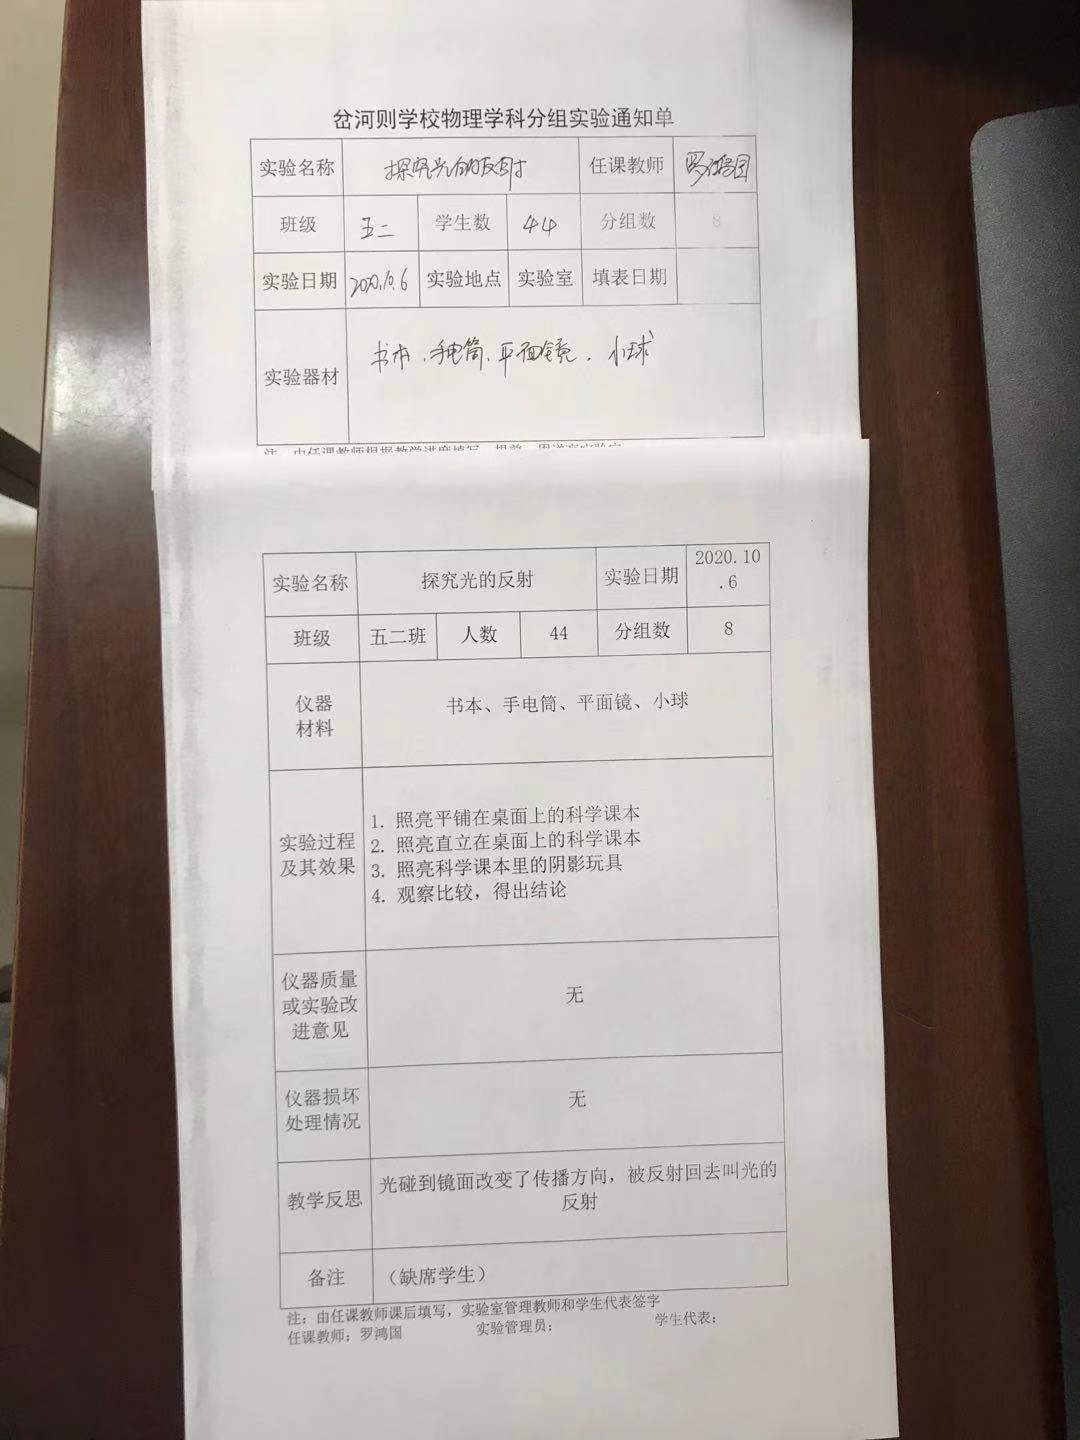 岔河则学校物理学科分组实验通知单
实验名称 探究光的反射 任课教师 罗鸿国
班级 五二 学生数 44 分组数 8
实验日期 2020.10.6 实验地点 实验室 填表日期
实验器材 书本、手电筒、平面镜、小球
注：由任课教师根据教学进度填写，提前一周送交实验室
实验名称 探究光的反射 实验日期 2020.10
.6
班级 五二班 人数 44 分组数 8
仪器
材料
书本、手电筒、平面镜、小球
实验过程
及其效果
1. 照亮平铺在桌面上的科学课本
2. 照亮直立在桌面上的科学课本
3. 照亮科学课本里的阴影玩具
4. 观察比较，得出结论
仪器质量
或实验改
进意见
无
仪器损坏
处理情况
无
教学反思
光碰到镜面改变了传播方向，被反射回去叫光的
反射
备注 （缺席学生）
注：由任课教师课后填写，实验室管理教师和学生代表签字
任课教师：罗鸿国 实验管理员： 学生代表：